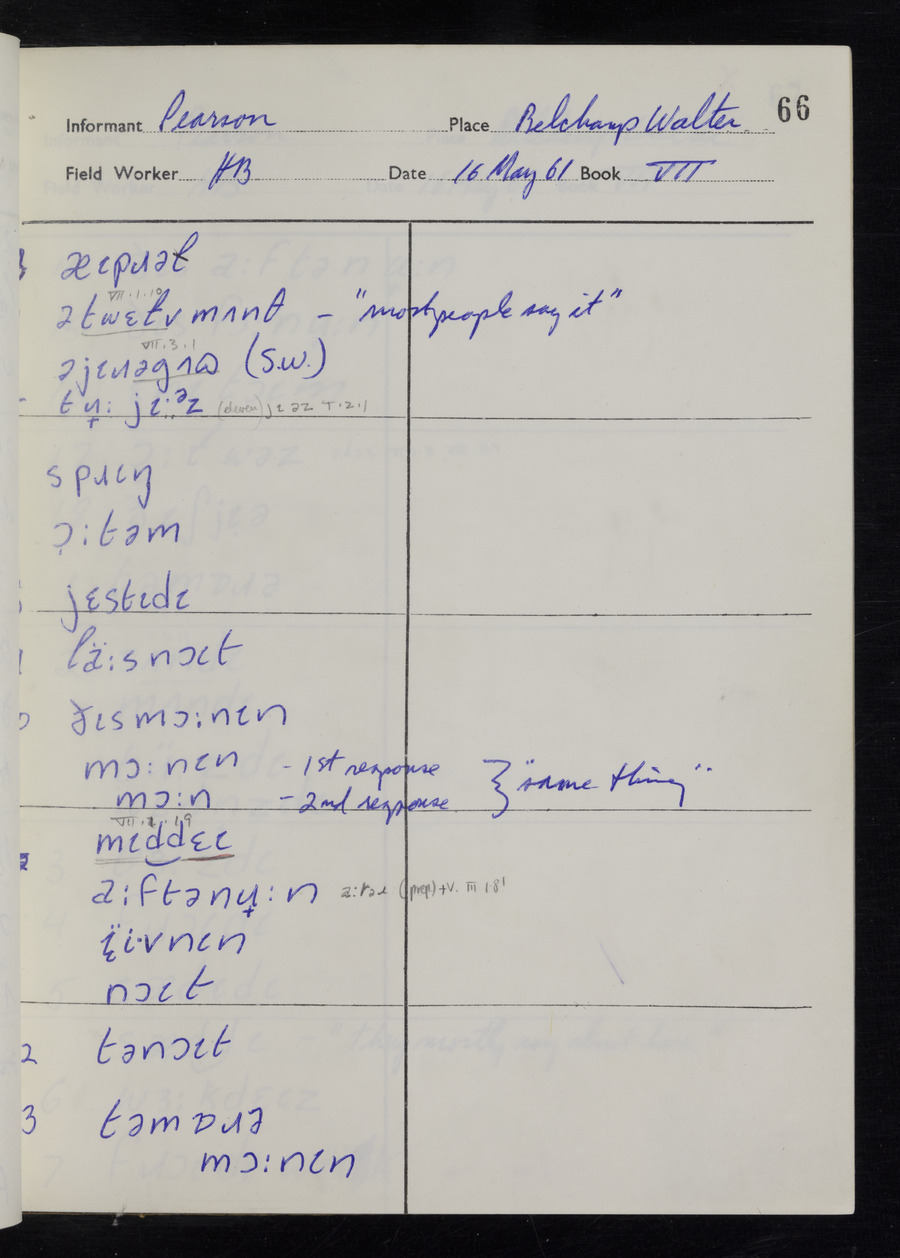 66
Informant Pearson Place Belchamp Walter
Field Worker HB Date 16 May 61 Book VII
æɪpɹəɫ
VII.1.10
ətwɛɫv mʌnθ - "most people say it"
VII.3.1
əjɪɹəgʌɷ (S.W.)
jɪ·əz jɪəz
spɹɪŋ
ɔ:təm
jɛstɪdɪ
lä:snɔɪt
ðɪsmɔ:nɪn
mɔ:nɪn - 1st response } "same thing"
mɔ:n - 2nd response
mɪddɛɪ
a:ftənʉ:n (prep) + V.
ïi·vnɪn
nɔɪt
2 tənɔɪt
3 təmɒɹə
mɔ:nɪn